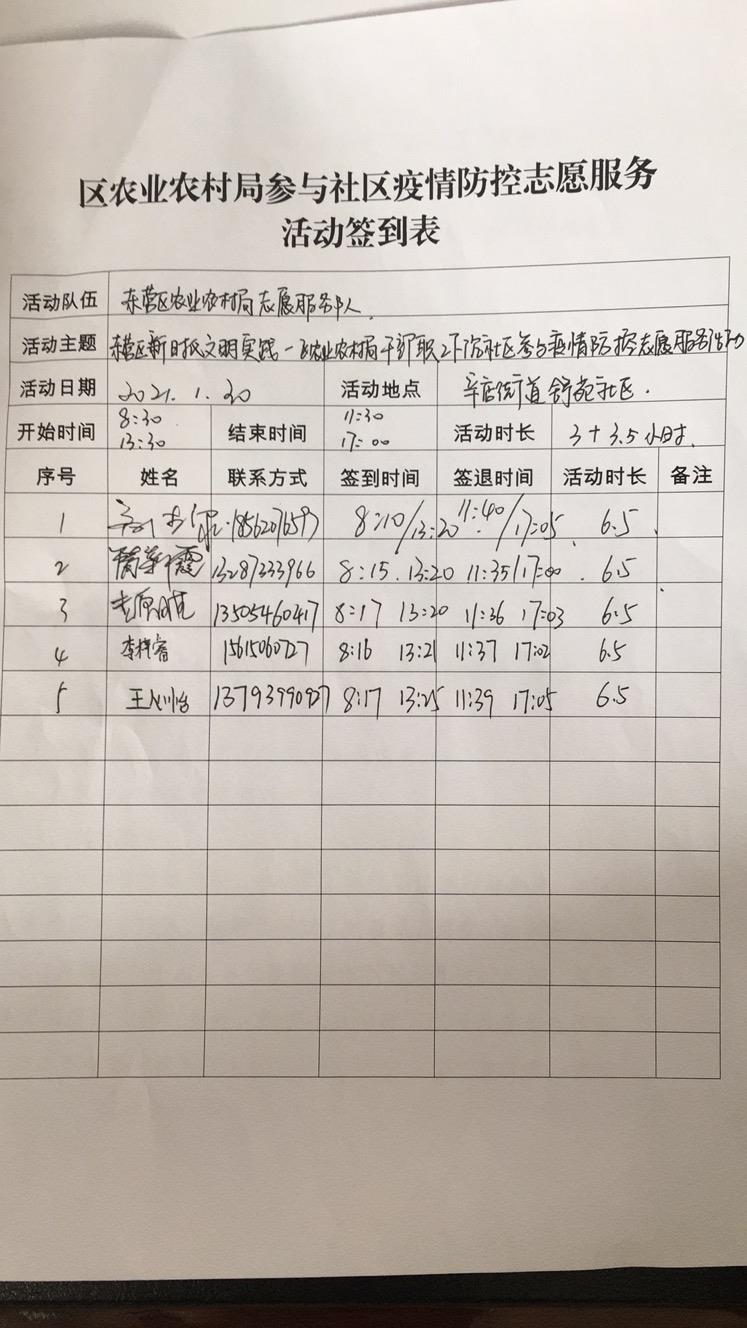 区农业农村局参与社区疫情防控志愿服务
活动签到表
活动队伍 东营区农业农村局志愿服务队
活动主题 东营区新时代文明实践一区农业农村局干部职工下沉社区参与疫情防控志愿服务活动
活动日期 2021.1.30 活动地点 辛店街道舒苑社区.
开始时间 8:30 13:30 结束时间 11:30 17:00 活动时长 3+3.5小时.
序号 姓名 联系方式 签到时间 签退时间 活动时长 备注
1 8:10/13:20 11:40/17:05 6.5
2 13287333966 8:15 13:20 11:35/17:00 6.5
3 13505460417 8:17 13:20 11:36 17:03 6.5
4 李梓睿 15615060727 8:16 13:21 11:37 17:02 6.5
5 8:17 13:25 11:39 17:05 6.5